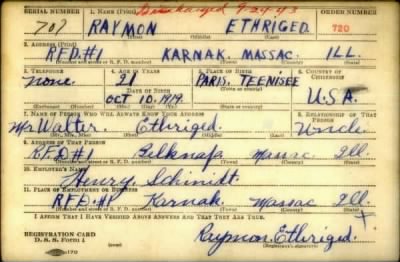 SERIAL NUMBER 1. NAME (Print) Discharged 9/24/43 ORDER NUMBER
707 RAYMON ETHRIGED 720
(First) (Middle) (Last)
2. ADDRESS (Print)
RFD.#1 KARNAK. MASSAC. ILL.
(Number and street or R. F. D. number) (Town) (County) (State)
3. TELEPHONE 4. AGE IN YEARS 5. PLACE OF BIRTH 6. COUNTRY OF CITIZENSHIP
none. 21 PARIS. TEENISEE
DATE OF BIRTH (Town or county)
OCT 10. 1919. U.S.A.
(Exchange) (Number) (Mo.) (Day) (Yr.) (State or country)
7. NAME OF PERSON WHO WILL ALWAYS KNOW YOUR ADDRESS 8. RELATIONSHIP OF THAT PERSON
Mr Walter Ethriged. Uncle
(Mr., Mrs., Miss) (First) (Middle) (Last)
9. ADDRESS OF THAT PERSON
R.F.D.#1 Belknap. Massac Ill.
(Number and street or R. F. D. number) (Town) (County) (State)
10. EMPLOYER'S NAME
Henry Schimidt
11. PLACE OF EMPLOYMENT OR BUSINESS
R.F.D.#1 Karnak. Massac Ill.
(Number and street or R. F. D. number) (Town) (County) (State)
I AFFIRM THAT I HAVE VERIFIED ABOVE ANSWERS AND THAT THEY ARE TRUE.
REGISTRATION CARD
D. S. S. Form 1
Raymon, Ethriged.